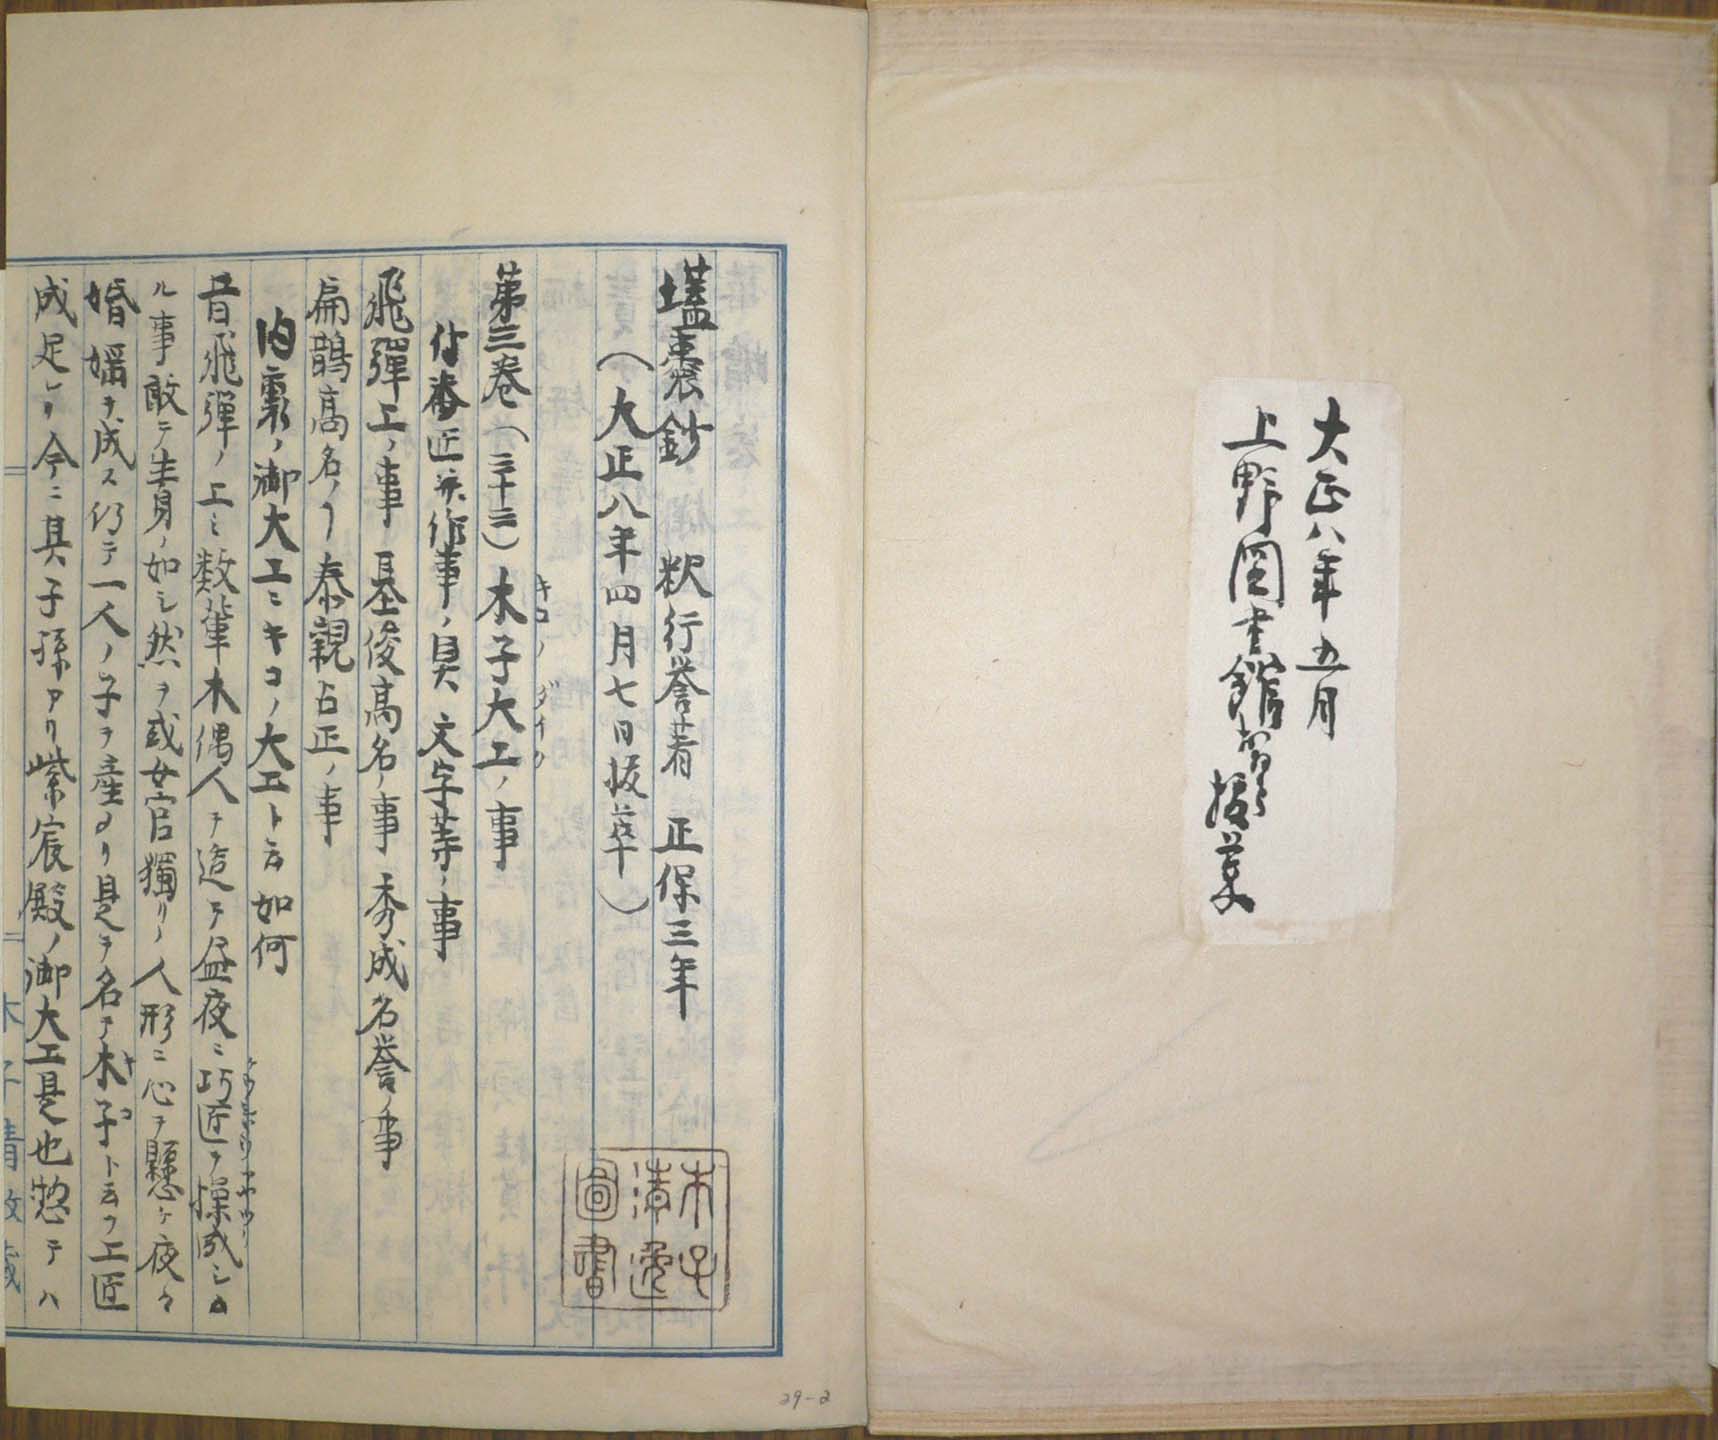 大正八年五月
上野図書館ニ於テ抜萃
壒嚢鈔 釈行誉著 正保三年
(大正八年四月七日抜萃)
第三巻(三十三)木子大工ノ事
キコノ ダイク
付番匠并作事ノ具文字等ノ事
飛彈工ノ事 基俊高名ノ事 秀成名誉ノ事
扁鵲高名ノ事 泰親占正ノ事
内裏ノ御大工ニキコノ大工ト云如何
昔飛彈ノ工ミ数輩木偶人ヲ造テ昼夜ニ巧匠ヲ操成シム
ル事敢テ生身ノ如シ然ヲ或女官獨リノ人形ニ心ヲ懸ケ夜々
婚媾ヲ成ス仍テ一人ノ子ヲ産メリ是ヲ名テ木子ト云フ工匠
キ コ
成足レリ今ニ其子孫アリ紫宸殿ノ御大工是也惣テハ
木子清逸圖書
木子清敬蔵
29-2